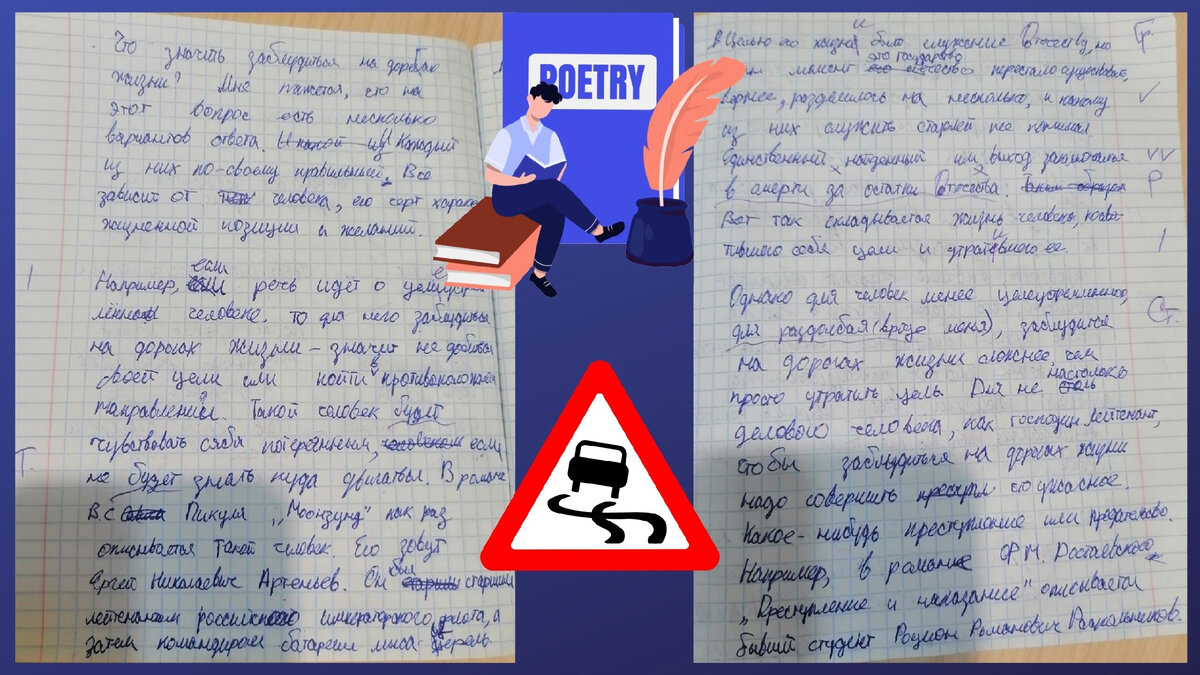 Что значить заблудиться на дорогах
жизни? Мне кажется, что на
этот вопрос есть несколько
вариантов ответа. Каждый
из них по-своему правильный. Всё
зависит от человека, его черт
жизненной позиции и желаний.
Например, если речь идёт о
человеке, то для него заблудиться
на дорогах жизни – значит не добиться
своей цели или пойти в противоположном
направлении. Такой человек будет
чувствовать себя потерянным, если
не будет знать куда двигаться. В романе
В.С. Пикуля „Моонзунд" как раз
описывается такой человек. Его зовут
Сергей Николаевич Артеньев. Он был старшим
лейтенантом российского императорского флота, а
затем командиром батареи мыса Церель.
POETRY
Целью его жизни было служение Отечеству, но
момент это государство перестало существовать,
вернее, разделилось на несколько, и какому
из них служить старлей не понимал.
Единственный найденный им выход заключался
в смерти за остатки Отечества.
Вот так складывается жизнь человека,
себя цели и утратившего её.
Гр.
V
VV
Р
I
Однако для человек менее целеустремленного,
для раздолбая (вроде меня), заблудиться
на дорогах жизни сложнее, чем
просто утратить цель. Для не настолько
делового человека, как господин лейтенант,
чтобы заблудиться на дорогах жизни
надо совершить что ужасное.
Какое-нибудь преступление или предательство.
Например, в романе Ф.М. Достаевского
„Преступление и наказание" описывается
бывший студент Родион Романович Раскольников.
Ст.